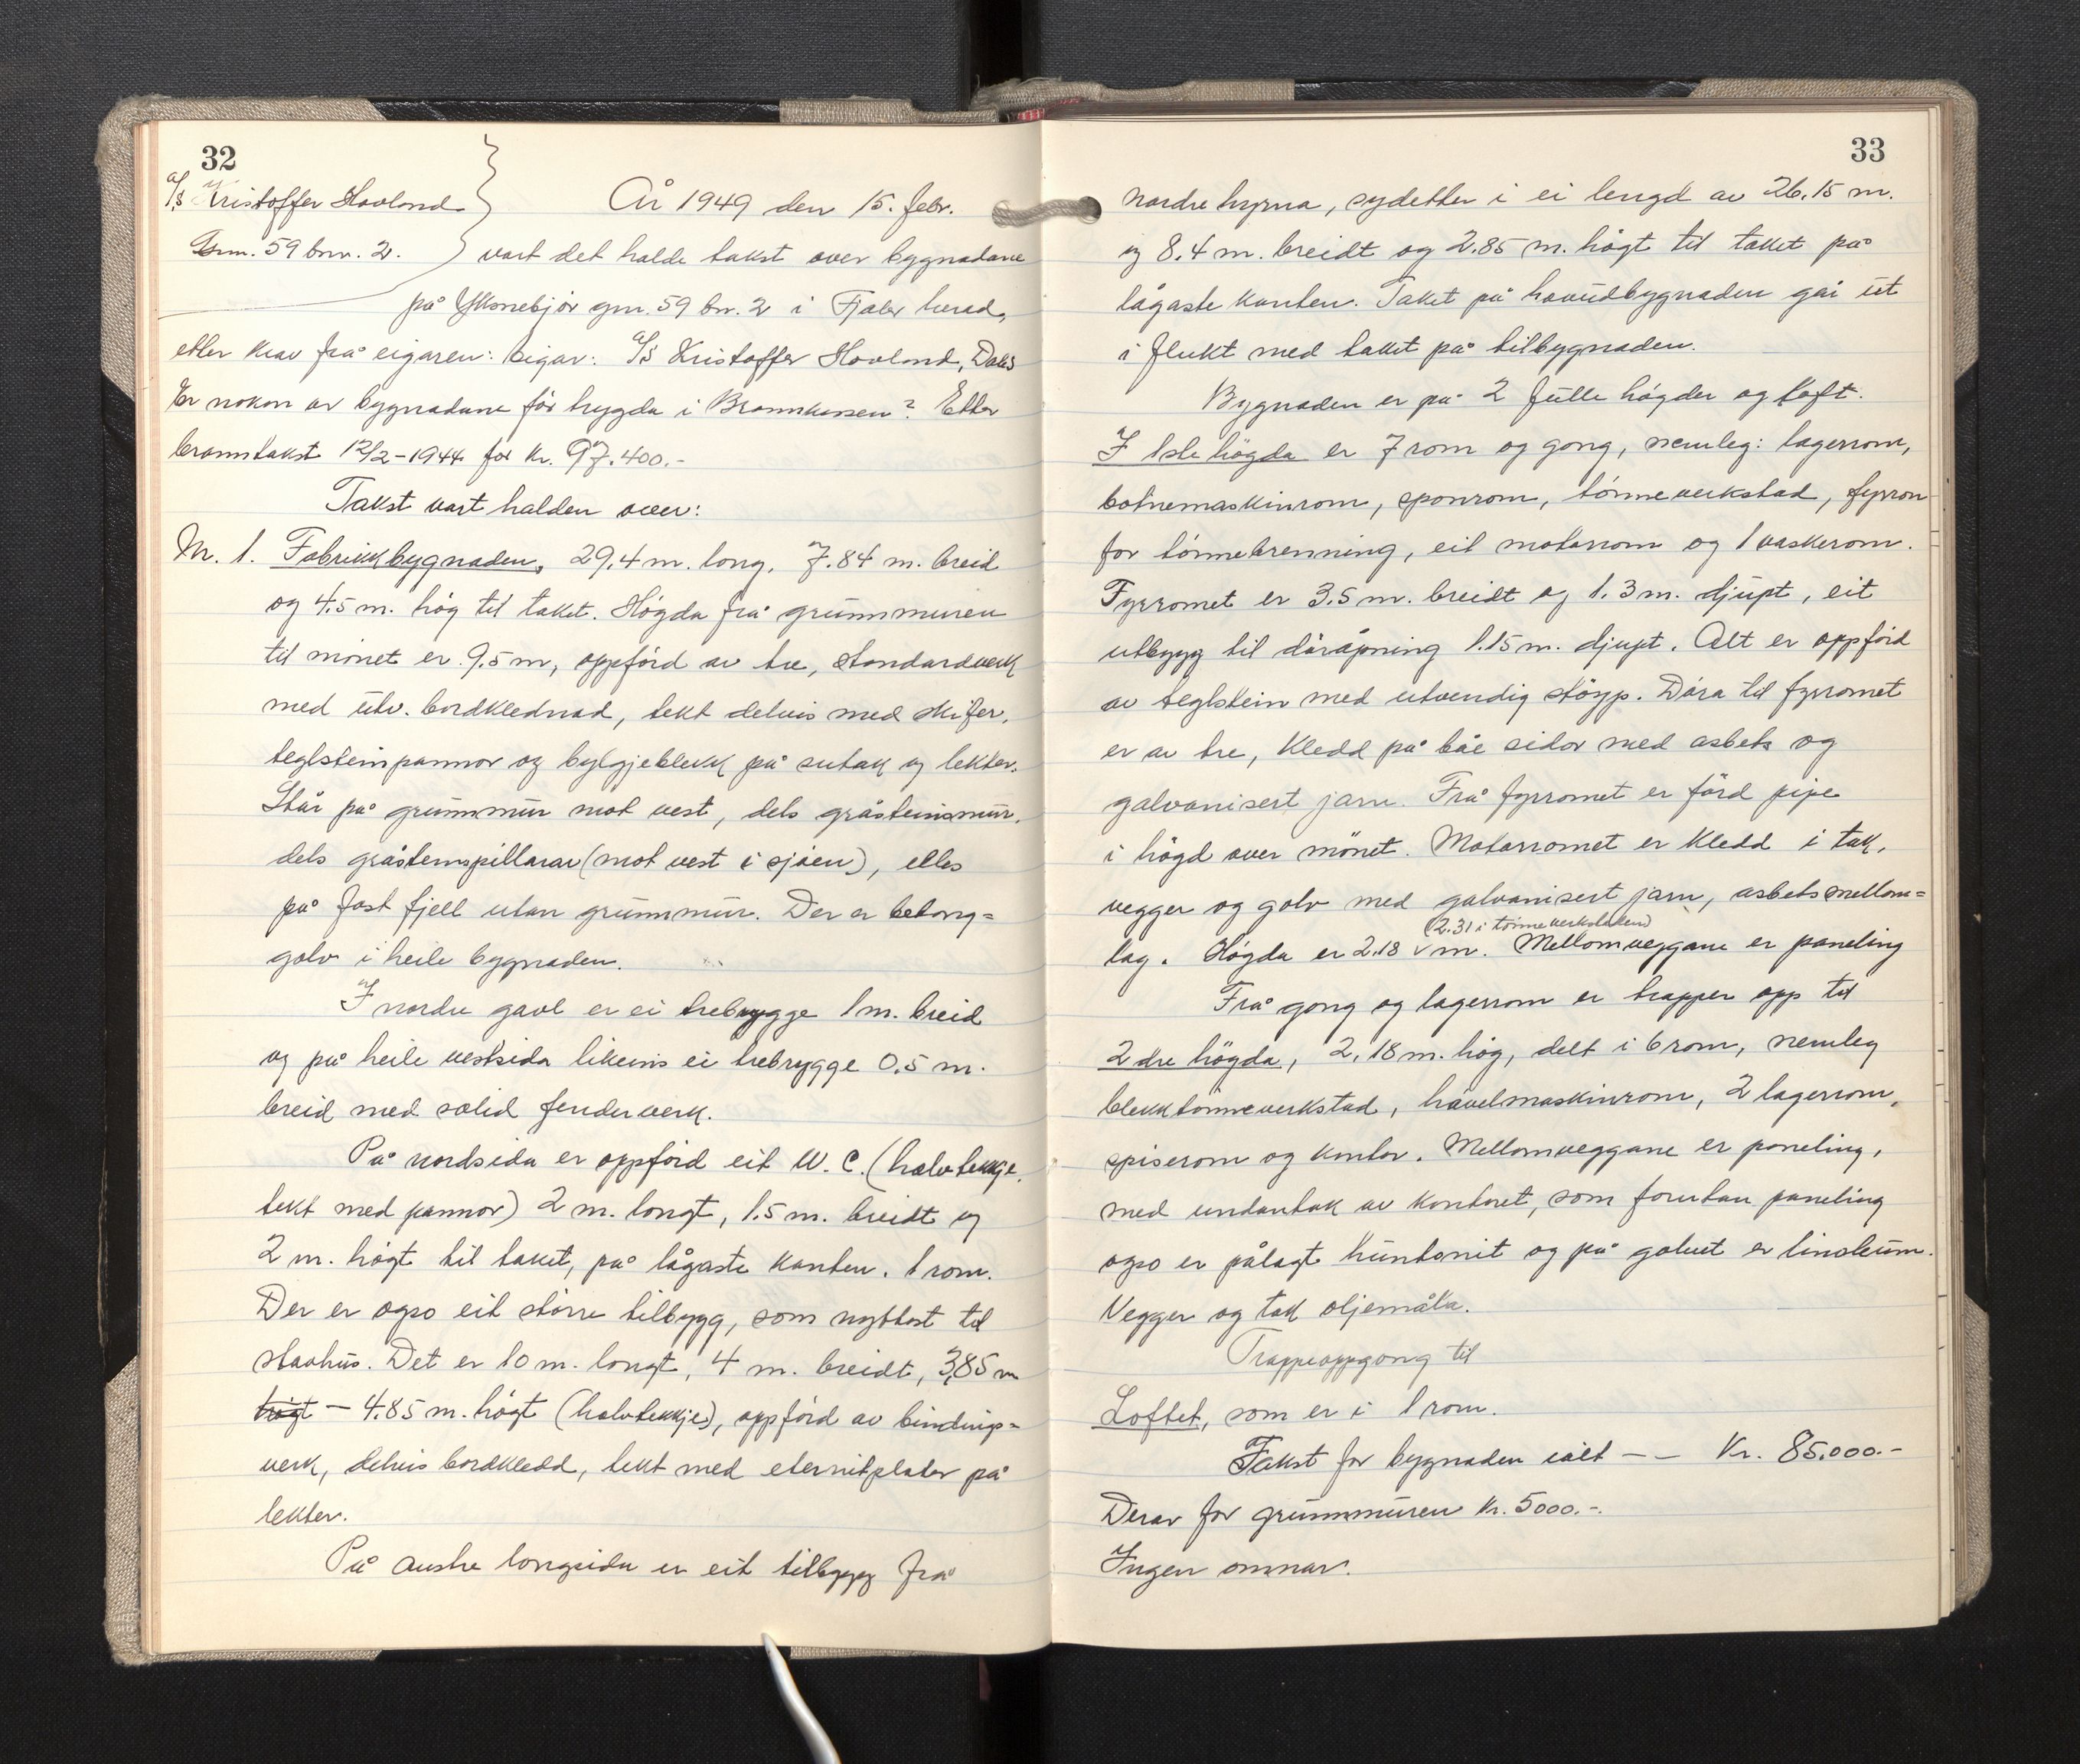 32
A/S Kristoffer Hovland
Gnr. 59 bnr. 2.
År 1949 den 15. febr.
vart det halde takst over bygnadane
på Yksnebjør gnr. 59 bnr. 2 i Fjaler herad,
etter krav frå eigaren: Eigar: A/S Kristoffer Hovland, Dale
Er nokon av bygnadane før trygda i Brannkassen? Etter
branntakst 12/2-1944 for kr. 97.400.-
Takst vart halden over:
Nr. 1. Fabrikkbygnaden, 29.4 m. long, 7.84 m. breid
og 4.5 m. høg til taket. Høgda frå grunnmuren
til mønet er 9.5 m, oppførd av tre, standardverk
med utv. bordklednad, tekt delvis med skifer,
teglsteinpannor og bylgjeblekk på sutak og lekter.
Står på grunnmur mot vest, dels gråsteinsmur,
dels gråsteinspillarar (mot vest i sjøen), elles
på fast fjell utan grunnmur. Der er betong=
golv i heile bygnaden.
I nordre gavl er ei trebrygge 1 m. breid
og på heile vestsida likeeins ei trebrygge 0.5 m.
breid med solid fenderverk.
På nordsida er oppførd eit W.C. (halvtekkje,
tekt med pannor) 2 m. longt, 1.5 m. breidt og
2 m. høgt til taket, på lågaste kanten. 1 rom.
Der er ogso eit større tilbygg, som nyttast til
stavhus. Det er 10 m. longt, 4 m. breidt, 3,85 m
høgt - 4.85 m. høgt (halvtekkje), oppførd av bindings=
verk, delvis bordkledd, tekt med eternitplater på
lekter.
På austre longsida er eit tilbygg frå
33
nordre hyrna, sydetter i ei lengd av 26.15 m.
og 8.4 m. breidt og 2.85 m. høgt til taket på
lågaste kanten. Taket på hovudbygnaden går ut
i flukt med taket på tilbygnaden.
Bygnaden er på 2 fulle høgder og loft.
I 1ste høgda er 7 rom og gong, nemleg: lagerrom,
botnemaskinrom, sponrom, tønneverkstad, fyrrom
for tønnebrenning, eit motorrom og 1 vaskerom.
Fyrromet er 3.5 m. breidt og 1.3 m. djupt, eit
utbygg til døråpning 1.15 m. djupt. Alt er oppførd
av teglstein med utvendig støyp. Døra til fyrromet
er av tre, kledd på båe sidor med asbest og
galvanisert jarn. Frå fyrromet er førd pipe
i høgd over mønet. Motorromet er kledd i tak,
vegger og golv med galvanisert jarn, asbetsmellom=
(2.31 i tønneverkstaden)
lag. Høgda er 2.18 v m. Mellomveggane er paneling
Frå gong og lagerrom er trapper opp til
2dre høgda, 2.18 m. høg, delt i 6 rom, nemleg
blekktønneverkstad, høvelmaskinrom, 2 lagerrom,
spiserom og kontor. Mellomveggane er paneling,
med undantak av kontoret, som forutan paneling
ogso er pålagt huntonit og på golvet er linoleum.
Vegger og tak oljemåla.
Trappeoppgong til
Loftet, som er i 1 rom.
Takst for bygnaden ialt - - Kr. 85.000.-
Derav for grunnmuren kr. 5000.-.
Ingen omnar.